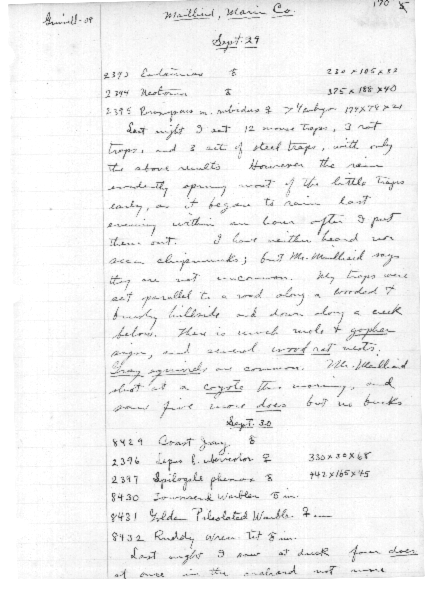 Grinnell-09
Mailliard, Marin Co.
170
Sept. 29
2393 ♂
2394 Neotoma ♂ 375 x 188 x 40
2395 Peromyscus m. rubidus ♀
Last night I set 12 mouse traps, 3 rat
traps, and 3 sets of steel traps, with only
the above results. However the rain
evidently sprung most of the little traps
early, as it began to rain last
evening within an hour after I put
them out. I have neither heard nor
seen chipmunks; but Mr. Mailliard says
they are not uncommon. My traps were
set parallel to a road along a wooded &
brushy hillside and down along a creek
below. There is much mole & gopher
sign, and several wood rat nests.
Gray squirrels are common. Mr. Mailliard
shot at a coyote this morning, and
saw five more does but no bucks
Sept. 30
8429 Coast Jay ♂
2396 Lepus ♀
2397 Spilogale phenax ♂ 442 x 165 x 45
8430 Townsend Warbler ♂ im.
8431 Golden Pileolated Warbler ♀ im
8432 Ruddy Wren-tit ♂ im.
Last night I saw at dusk four does
at once in the orchard not more